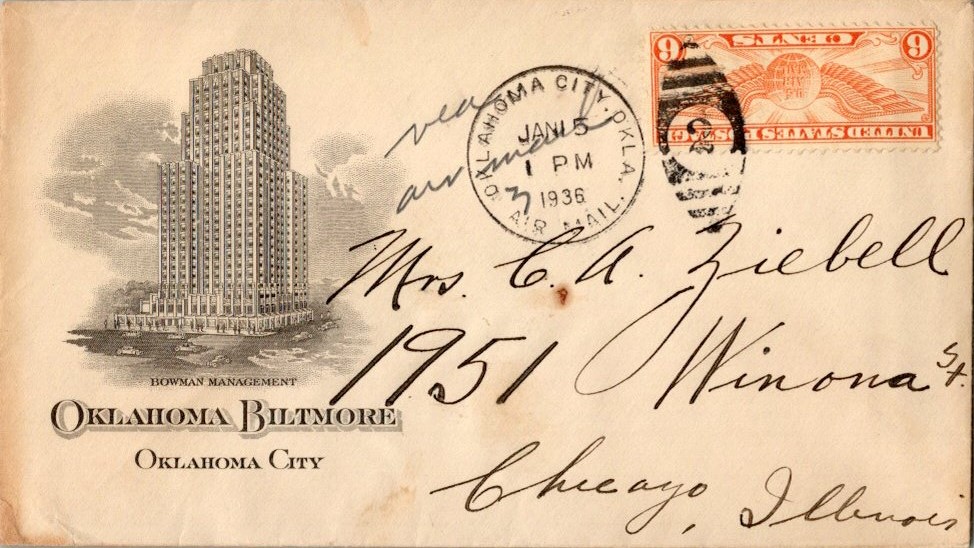 6 CENTS 6
UNITED STATES POSTAGE
OKLAHOMA CITY, OKLA.
JAN 15
1 PM
1936
AIR MAIL.
via
air mail
Mrs. C. A. Ziebell
1951 Winona St.
Chicago, Illinois
BOWMAN MANAGEMENT
OKLAHOMA BILTMORE
OKLAHOMA CITY